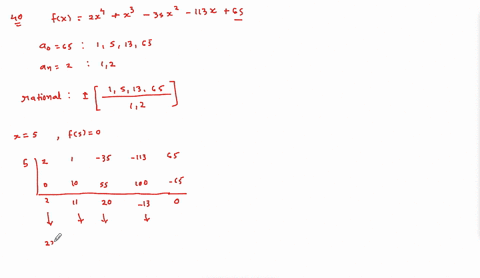 40 f(x) = 2x⁴ + x³ - 35x² - 113x + 65
a₀ = 65 : 1, 5, 13, 65
aₙ = 2 : 1, 2
rational : ± [ 1, 5, 13, 65 / 1, 2 ]
x = 5 , f(5) = 0
5 | 2 1 -35 -113 65
0 10 55 100 -65
2 11 20 -13 0
↓ ↓ ↓ ↓
2x